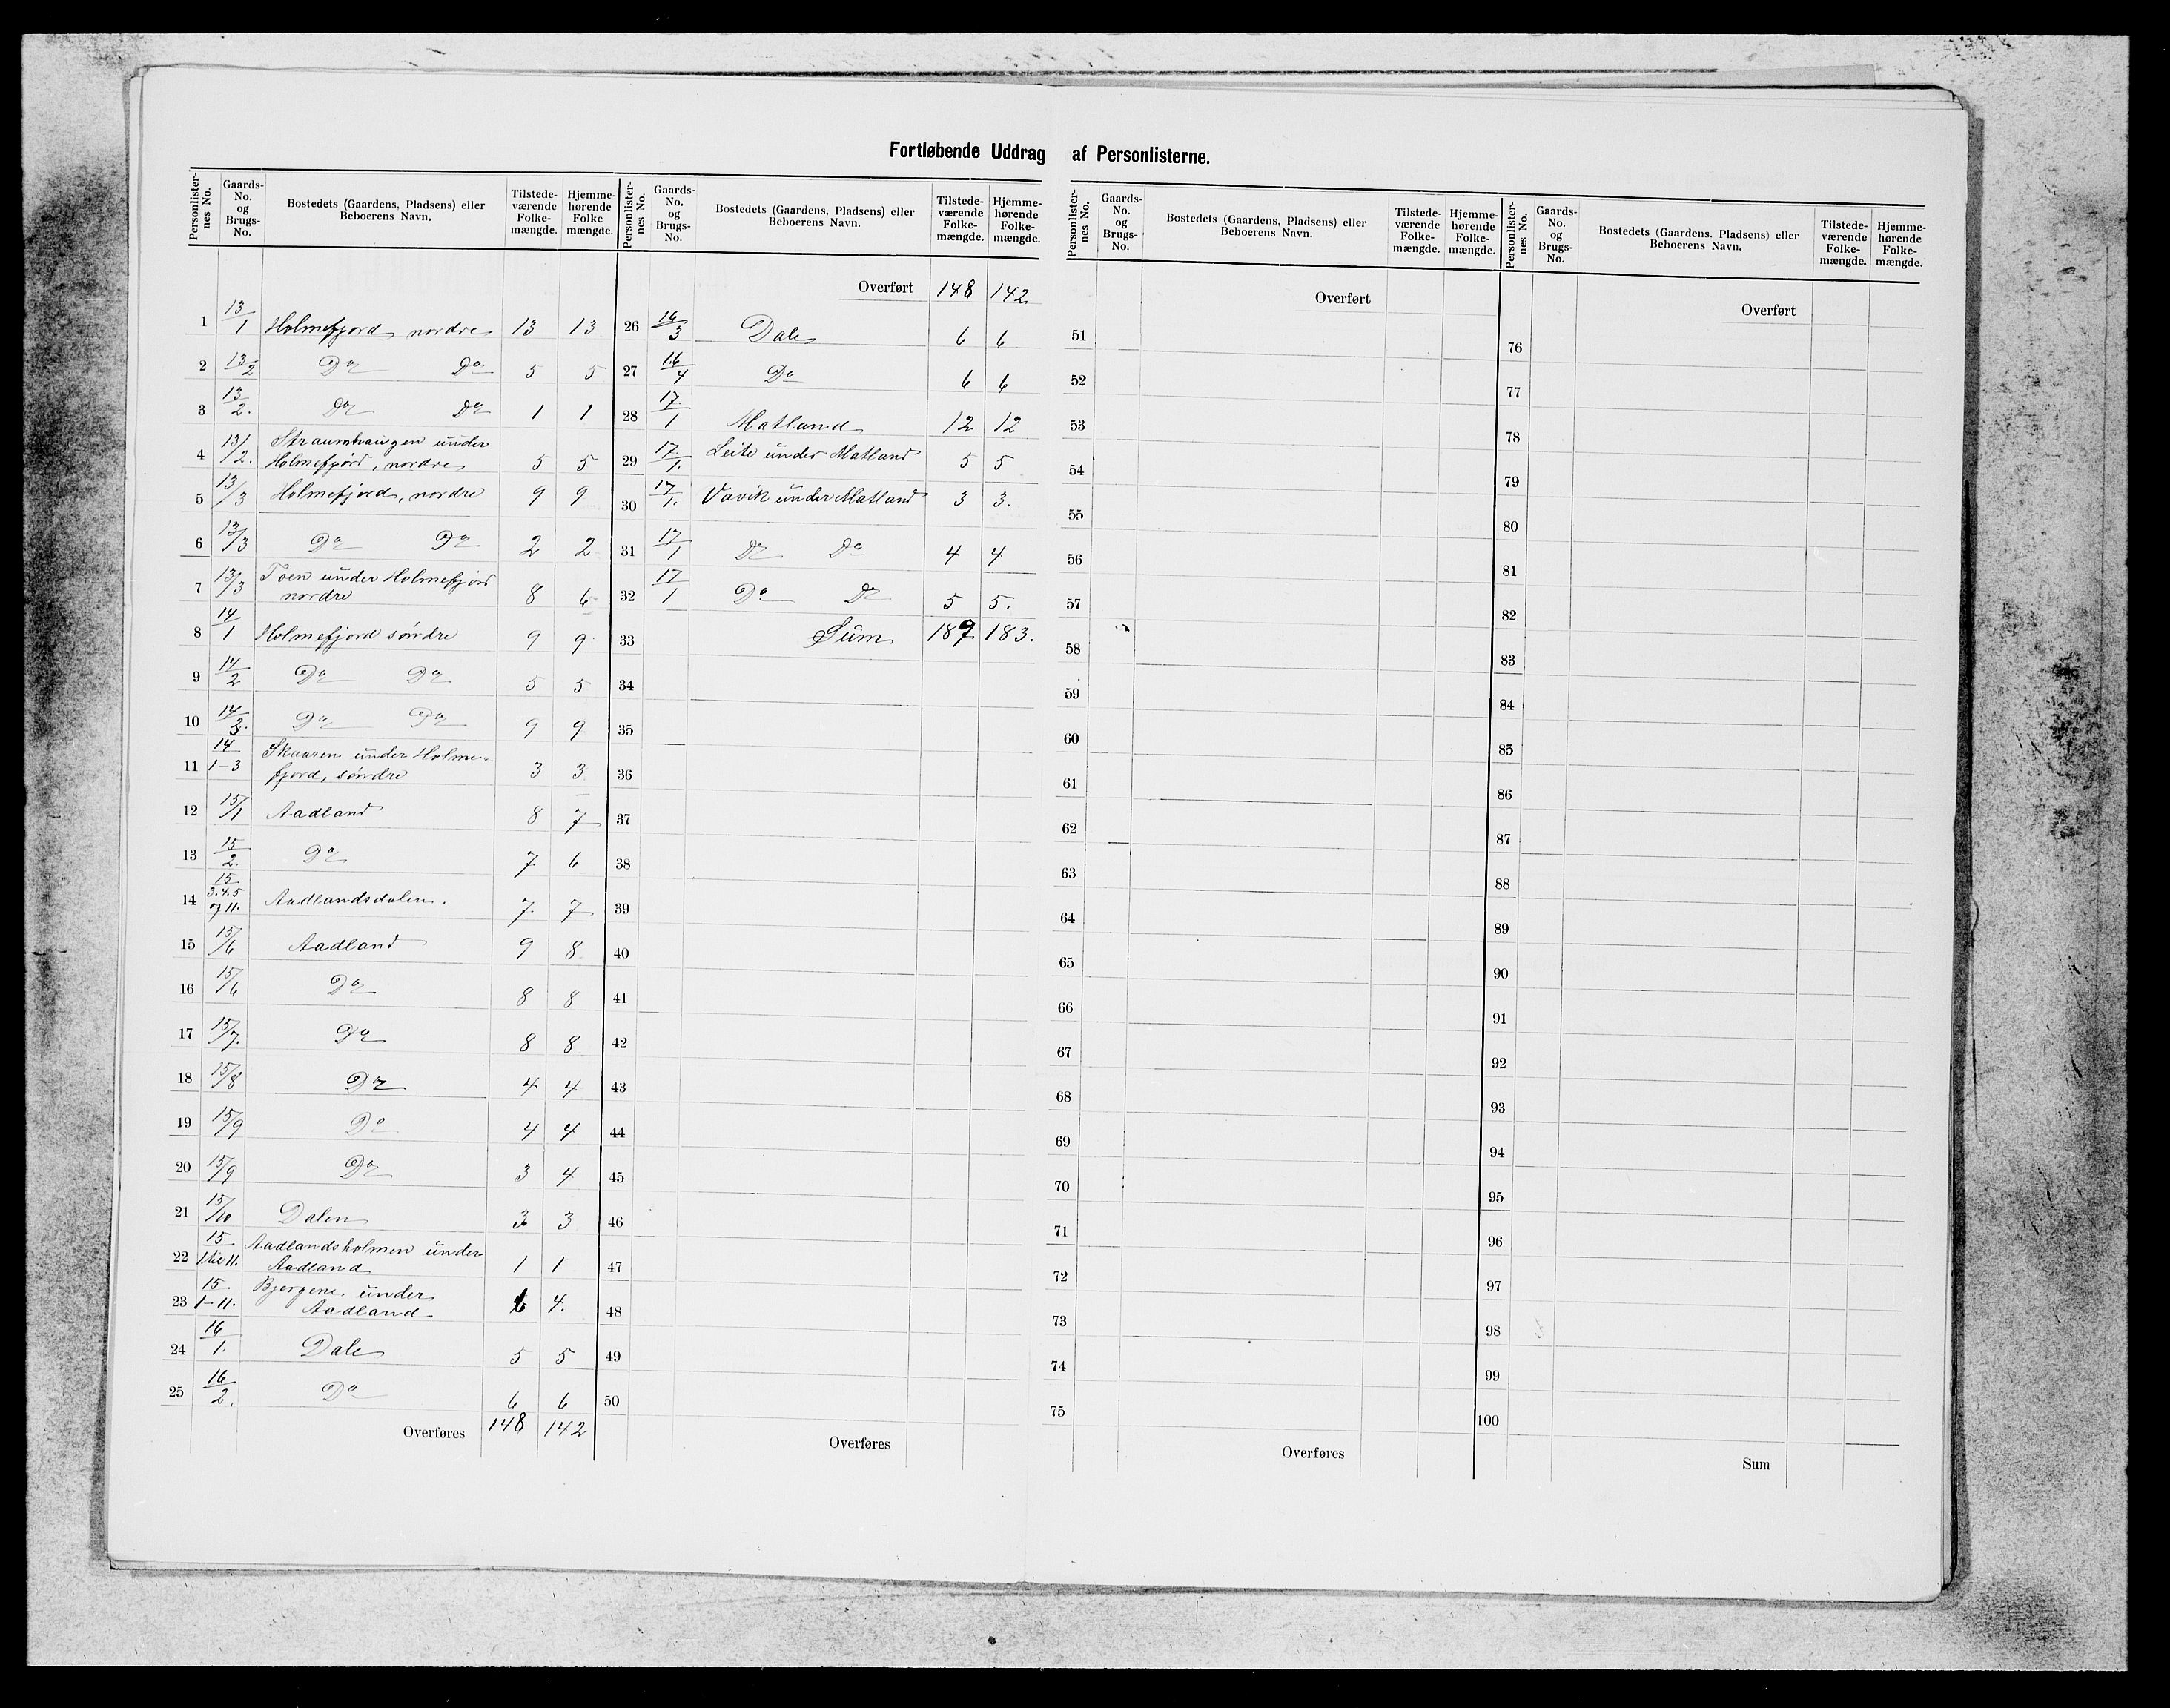 Fortløbende Uddrag af Personlisterne.
Personlisternes No. | Gaards-No. og Brugs-No. | Bostedets (Gaardens, Pladsens) eller Beboerens Navn. | Tilstedeværende Folkemængde. | Hjemmehørende Folkemængde.
1 13/1 Holmefjord nordre 13 13
2 13/2 Do Do 5 5
3 13/2. Do Do 1 1
4 13/2. Straumhaugen under
Holmefjord, nordre 5 5
5 13/3 Holmefjord, nordre 9 9
6 13/3 Do Do 2 2
7 13/3 Toen under Holmefjord
nordre 8 6
8 14/1 Holmefjord søndre 9 9
9 14/2 Do Do 5 5
10 14/3. Do Do 9 9
11 14/1-3 Skaaren under Holme-
fjord, søndre 3 3
12 15/1 Aadland 8 7
13 15/2. Do 7 6
14 15/3.4.5 og 11. Aadlandsdalen. 7. 7
15 15/6 Aadland 9 8
16 15/6 Do 8 8
17 15/7. Do 8 8
18 15/8 Do 4 4
19 15/9 Do 4 4
20 15/9 Do 3 4
21 15/10 Dalen 3 3
22 15/1 til 11. Aadlandsholmen under
Aadland 1 1
23 15/1-11. Bjergene under
Aadland 6 4.
24 16/1. Dale 5 5
25 16/2. Do 6 6
Overføres 148 142
Overført 148 142
26 16/3 Dale 6 6
27 16/4 Do 6 6
28 17/1 Matland 12 12
29 17/1. Leite under Matland 5 5
30 17/1. Vavik under Matland 3 3.
31 17/1 Do Do 4 4
32 17/1 Do Do 5 5.
33 Sum 189 183.
34
35
36
37
38
39
40
41
42
43
44
45
46
47
48
49
50
Overføres
Personlisternes No. | Gaards-No. og Brugs-No. | Bostedets (Gaardens, Pladsens) eller Beboerens Navn. | Tilstedeværende Folkemængde. | Hjemmehørende Folkemængde.
Overført
51
52
53
54
55
56
57
58
59
60
61
62
63
64
65
66
67
68
69
70
71
72
73
74
75
Overføres
Overført
76
77
78
79
80
81
82
83
84
85
86
87
88
89
90
91
92
93
94
95
96
97
98
99
100
Sum